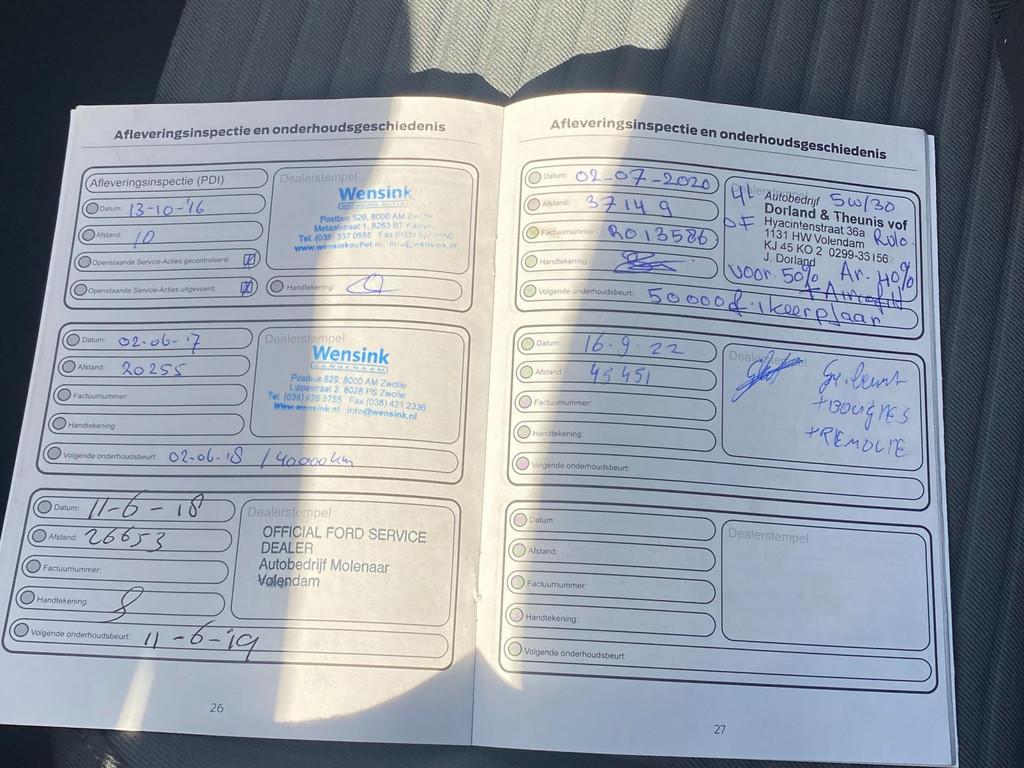 Afleveringsinspectie en onderhoudsgeschiedenis
Afleveringsinspectie (PDI)
Datum: 13-10-'16
Afstand: 10
Openstaande Service-Acties gecontroleerd:
Openstaande Service-Acties uitgevoerd:
Dealerstempel
Wensink
Postbus 529, 8000 AM
Metaalstraat 1, 8263 BT
Tel. (038) 337 0555 Fax (038)
www.wensinkoutlet.nl
Handtekening:
Datum: 02-06-'17
Afstand: 20255
Factuurnummer:
Handtekening:
Dealerstempel
Wensink
Postbus 529, 8000 AM Zwolle
Lippestraat 2, 8028 PS Zwolle
Tel. (038) 426 5755 Fax (038) 421 2336
www.wensink.nl info@wensink.nl
Volgende onderhoudsbeurt: 02-06-'18 / 40000km
Datum: 11-6-18
Afstand: 26653
Factuurnummer:
Handtekening:
Dealerstempel
OFFICIAL FORD SERVICE
DEALER
Autobedrijf Molenaar
Volendam
Volgende onderhoudsbeurt: 11-6-'19
26
Afleveringsinspectie en onderhoudsgeschiedenis
Datum: 02-07-2020
Afstand: 37149
Factuurnummer: RO13586
Handtekening:
Dealerstempel
4L 5W/30
Autobedrijf
Dorland & Theunis vof
Hyacintenstraat 36a
1131 HW Volendam
KJ 45 KO 2 0299-33156
J. Dorland
voor. 50% Ar. 40%
Volgende onderhoudsbeurt: 50000
Datum: 16-9-22
Afstand: 45451
Factuurnummer:
Handtekening:
Dealerstempel
Gr. beurt
+ BOUGIES
Volgende onderhoudsbeurt:
Datum:
Afstand:
Factuurnummer:
Handtekening:
Dealerstempel
Volgende onderhoudsbeurt:
27